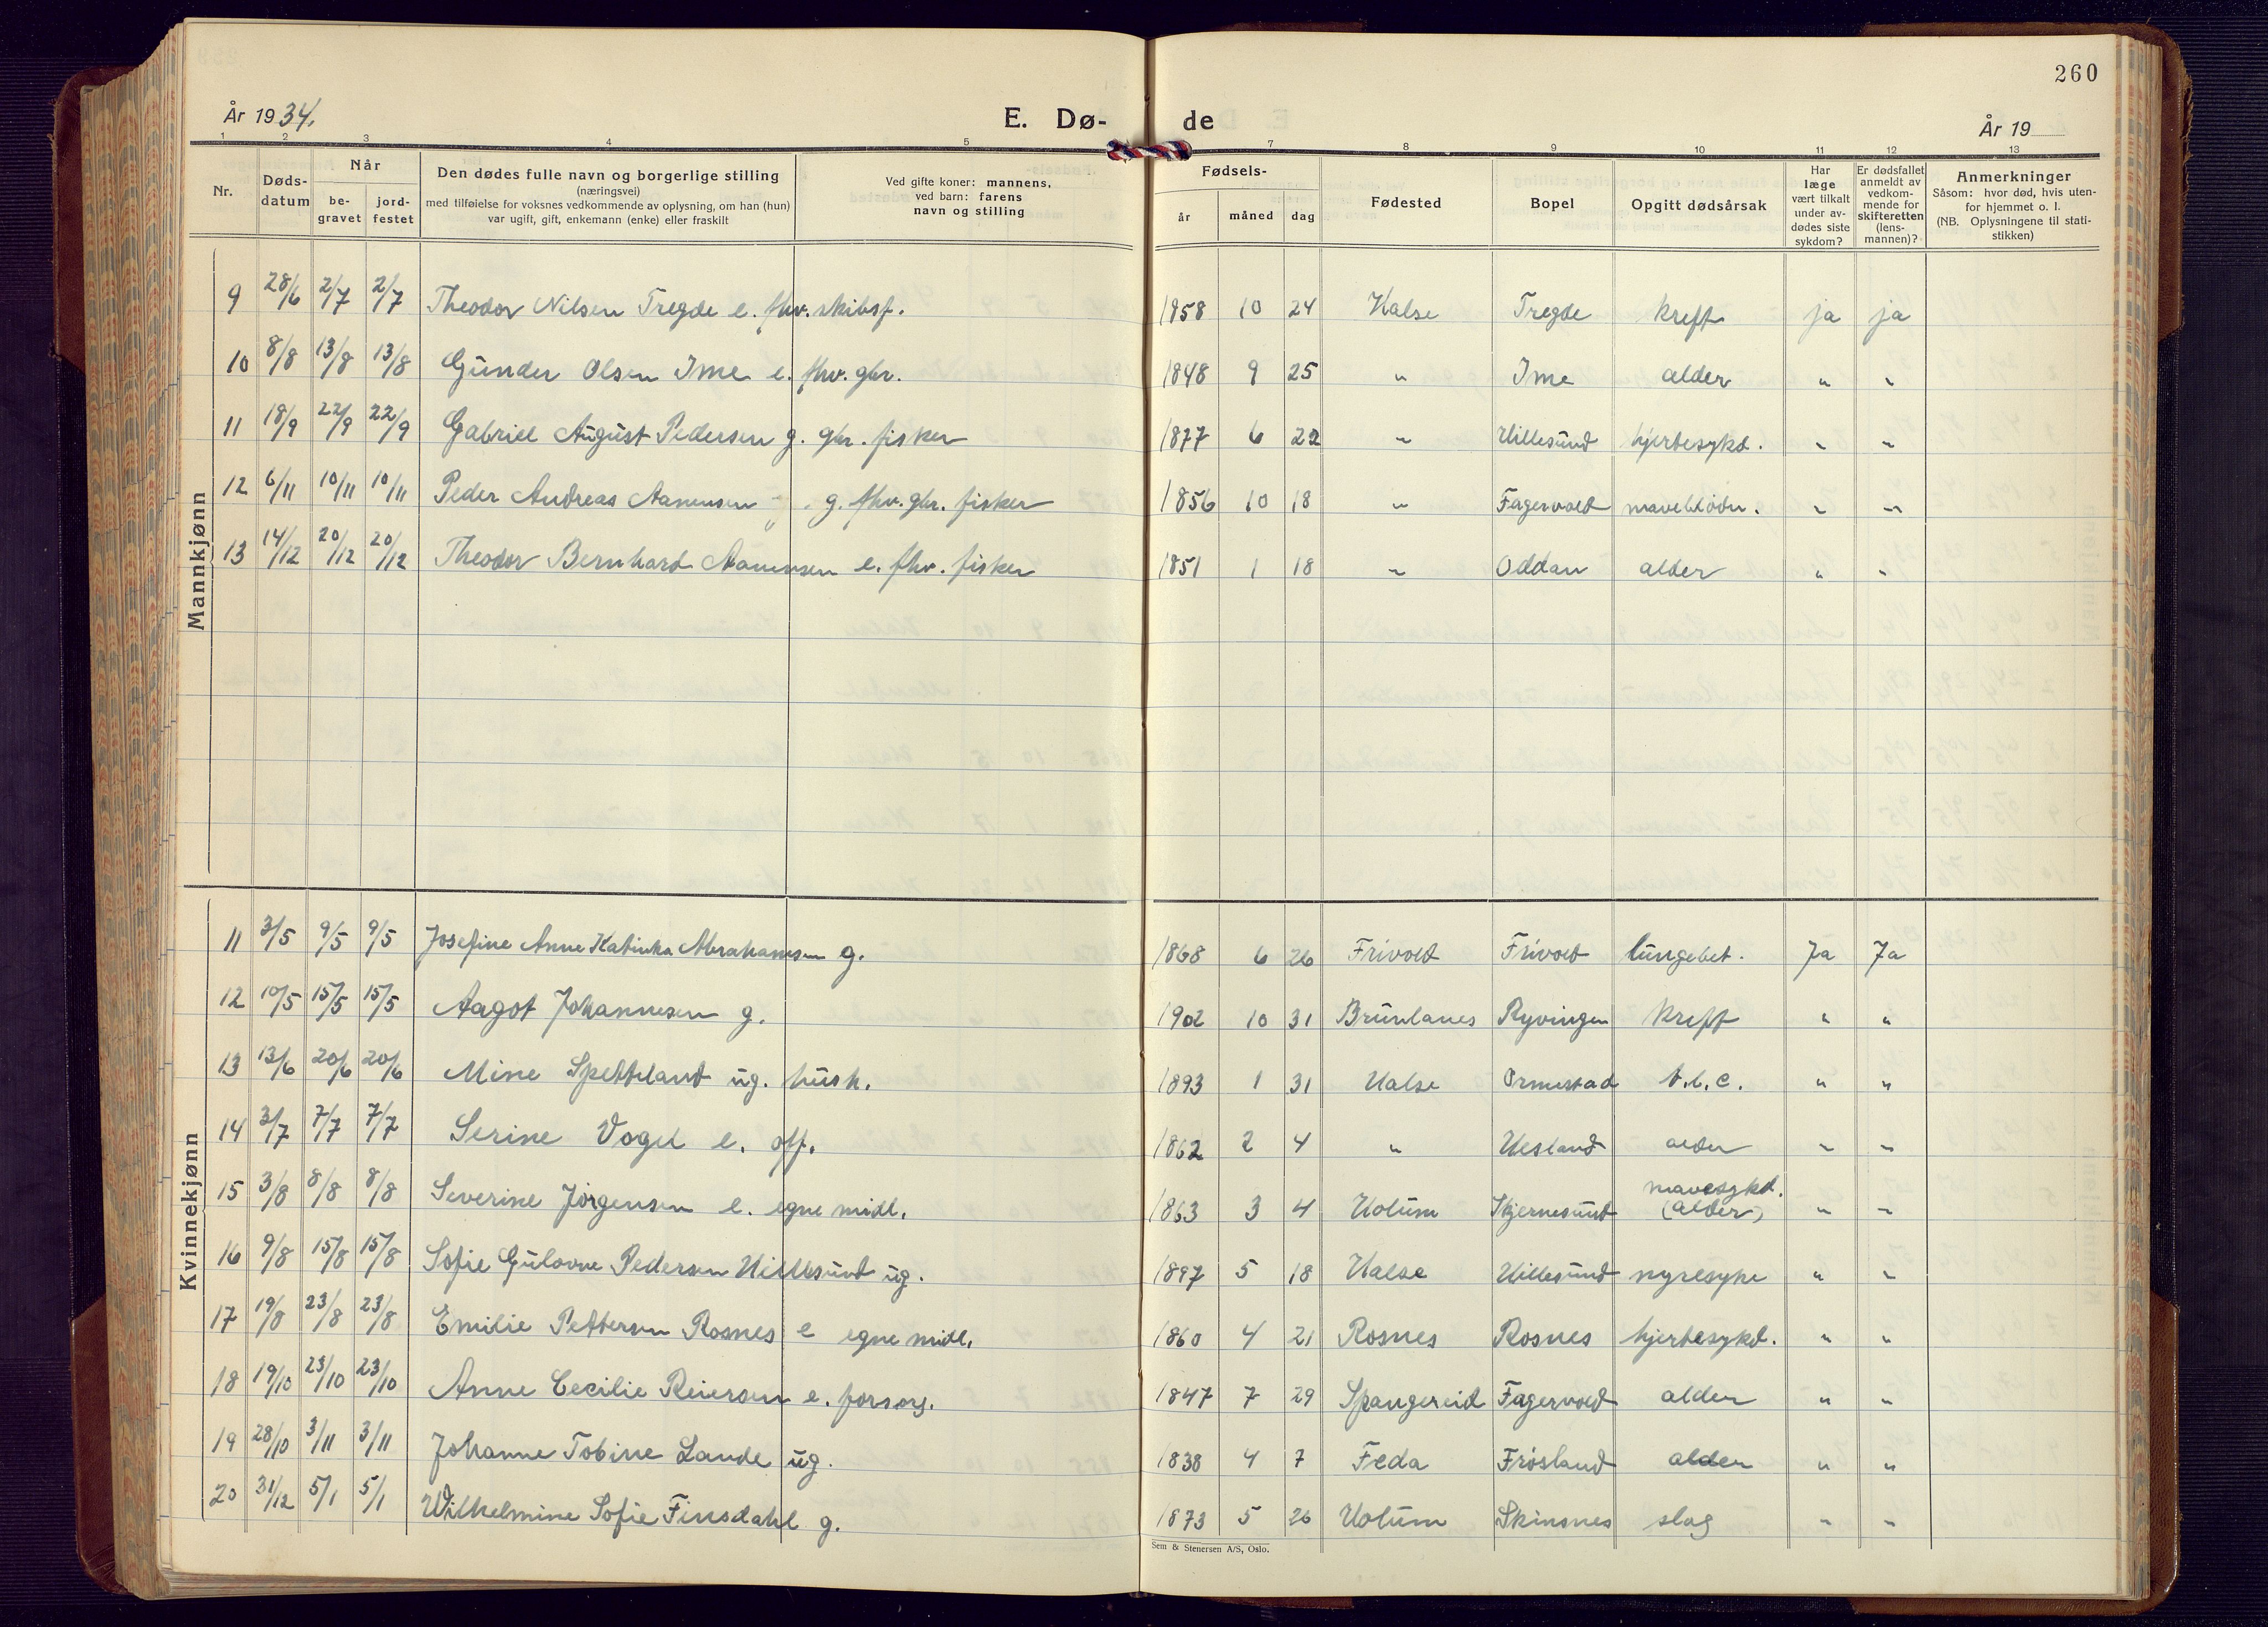 260
År 1934. E. Dø- de År 19
1 2 3 4 5 7 8 9 10 11 12 13
Nr.
Døds-datum
Når
be-gravet
jord-festet
Den dødes fulle navn og borgerlige stilling
(næringsvei)
med tilføielse for voksnes vedkommende av oplysning, om han (hun)
var ugift, gift, enkemann (enke) eller fraskilt
Ved gifte koner: mannens,
ved barn: farens
navn og stilling
Fødsels-
år måned dag
Fødested
Bopel
Opgitt dødsårsak
Har
læge
vært tilkalt
under av-
dødes siste
sykdom?
Er dødsfallet
anmeldt av
vedkom-
mende for
skifteretten
(lens-
mannen)?
Anmerkninger
Såsom: hvor død, hvis uten-
for hjemmet o. l.
(NB. Oplysningene til stati-
stikken)
Mannkjønn
9 28/6 2/7 2/7 Theodor Nilsen Tregde e. fhv. skibsf. 1858 10 24 Halse Tregde kreft ja ja
10 8/8 13/8 13/8 Gunder Olsen Ime e. fhv. gbr. 1848 9 25 " Ime alder " "
11 18/9 22/9 22/9 Gabriel August Pedersen g. gbr. fisker 1877 6 22 " Hillesund hjertesykd. " "
12 6/11 10/11 10/11 Peder Andreas Aanensen g. fhv. gbr. fisker 1856 10 18 " Fagervold maveblødn. " "
13 14/12 20/12 20/12 Theodor Bernhard Aanensen e. fhv. fisker 1851 1 18 " Oddan alder " "
Kvinnekjønn
11 3/5 9/5 9/5 Josefine Anne Katinka Abrahamsen g. 1868 6 26 Frivold Frivold lungebet. Ja Ja
12 10/5 15/5 15/5 Aagot Johannesen g. 1902 10 31 Brunlanes Ryvingen kreft " "
13 13/6 20/6 20/6 Mine Spetteland ug. hush. 1893 1 31 Halse Ormestad t.b.c. " "
14 3/7 7/7 7/7 Serine Vogel e. off. 1862 2 4 " Hesland alder " "
15 3/8 8/8 8/8 Severine Jørgensen e. egne midl. 1863 3 4 Holum Skjernesund mavesykd. (alder) " "
16 9/8 15/8 15/8 Sofie Gulovne Pedersen Hillesund ug. 1897 5 18 Halse Hillesund nyresyke " "
17 19/8 23/8 23/8 Emilie Pettersen Rosnes e egne midl. 1860 4 21 Rosnes Rosnes hjertesykd. " "
18 19/10 23/10 23/10 Anne Cecilie Reiersen e. forsorg. 1847 7 29 Spangereid Fagervold alder " "
19 28/10 3/11 3/11 Johanne Tobine Lande ug. 1838 4 7 Feda Frøsland alder " "
20 31/12 5/1 5/1 Wilhelmine Sofie Finsdahl g. 1873 5 26 Holum Skinsnes slag " "
Sem & Stenersen A/S, Oslo.